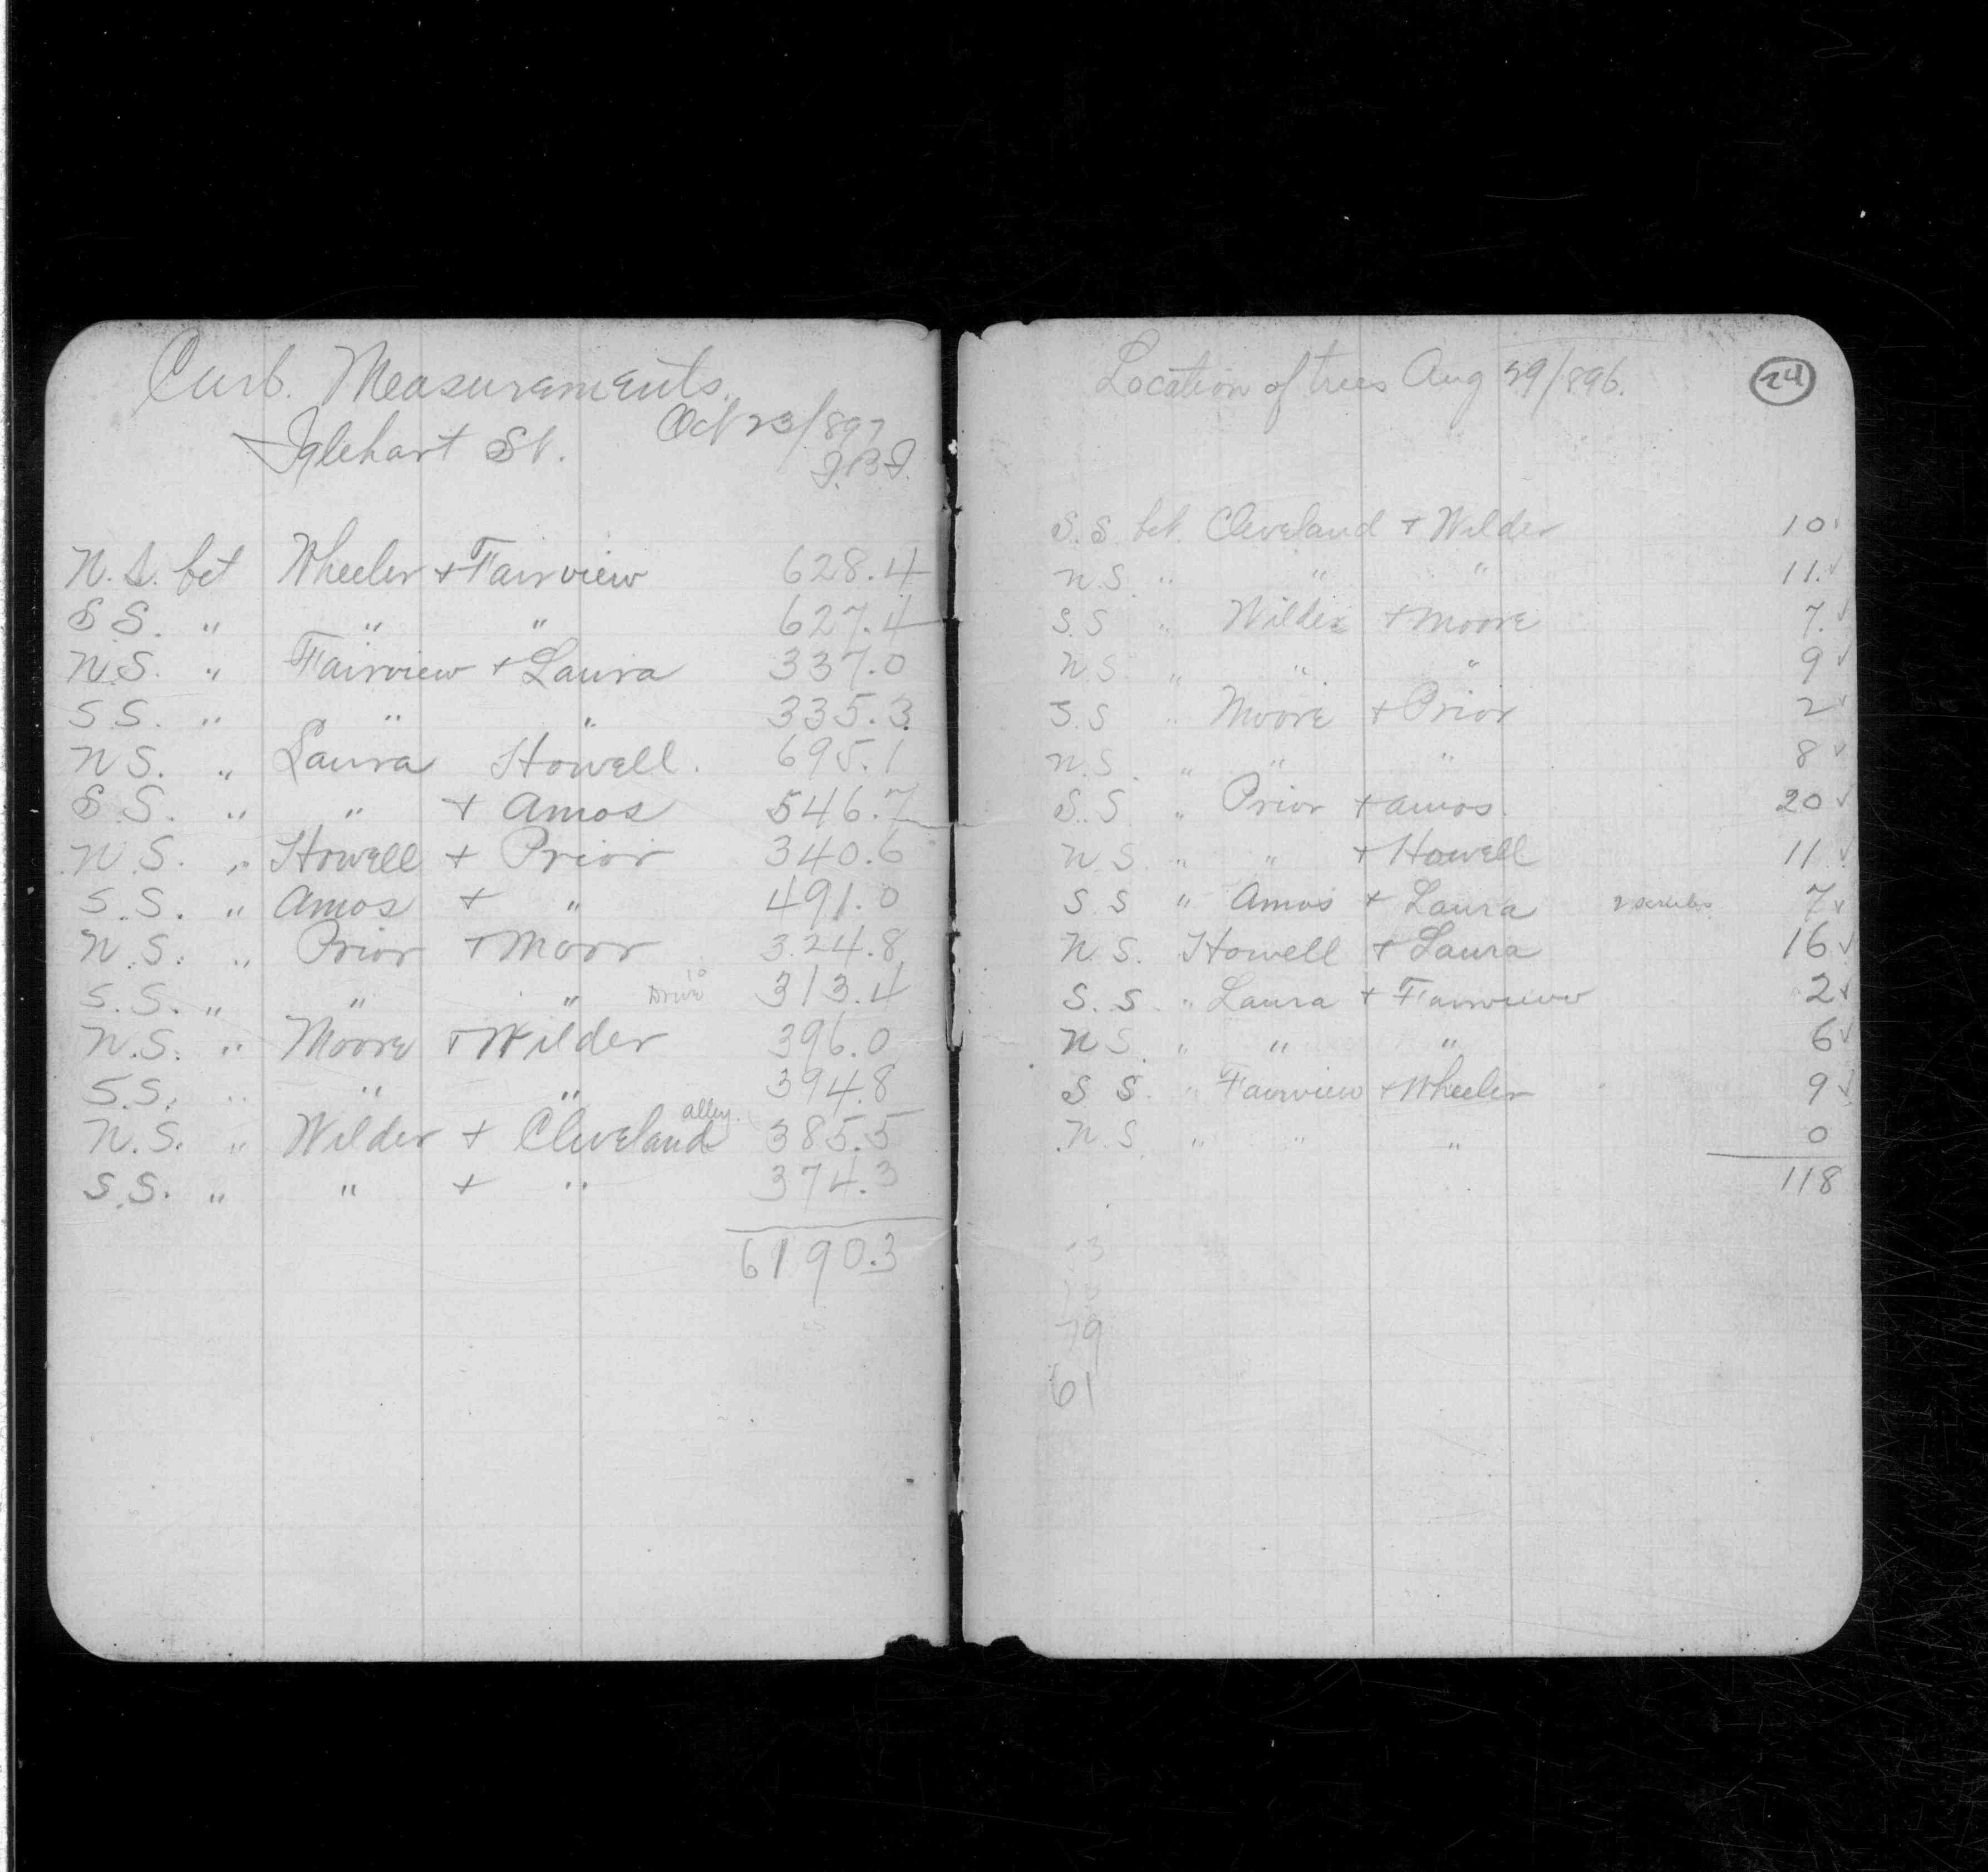 Curb. Measurements.
Iglehart St.
Oct 23/897
N.S. bet Wheeler + Fairview 628.4
S.S. " " " 627.4
N.S. " Fairview + Laura 337.0
S.S. " " " 335.3
N.S. " Laura Howell. 695.1
S.S. " " + Amos 546.7
N.S. " Howell + Prior 340.6
S.S. " Amos + " 491.0
N.S. " Prior + Moor 324.8
S.S. " " " Drive 10 313.4
N.S. " Moore + Wilder 396.0
S.S. " " " 394.8
N.S. " Wilder + Cleveland alley. 385.5
S.S. " " + " 374.3
6190.3
Location of trees Aug 29/896.
24
S.S. bet. Cleveland + Wilder 10
N.S. " " " 11.
S.S " Wilder + Moore 7.
N.S " " " 9
S.S " Moore + Prior 2
N.S. " " " 8
S.S. " Prior + Amos. 20
N.S. " " + Howell 11
S.S " Amos + Laura 7
N.S. Howell + Laura 16
S.S. " Laura + Fairview 2
N.S. " " " 6
S.S. " Fairview + Wheeler 9
N.S. " " " 0
118
79
61